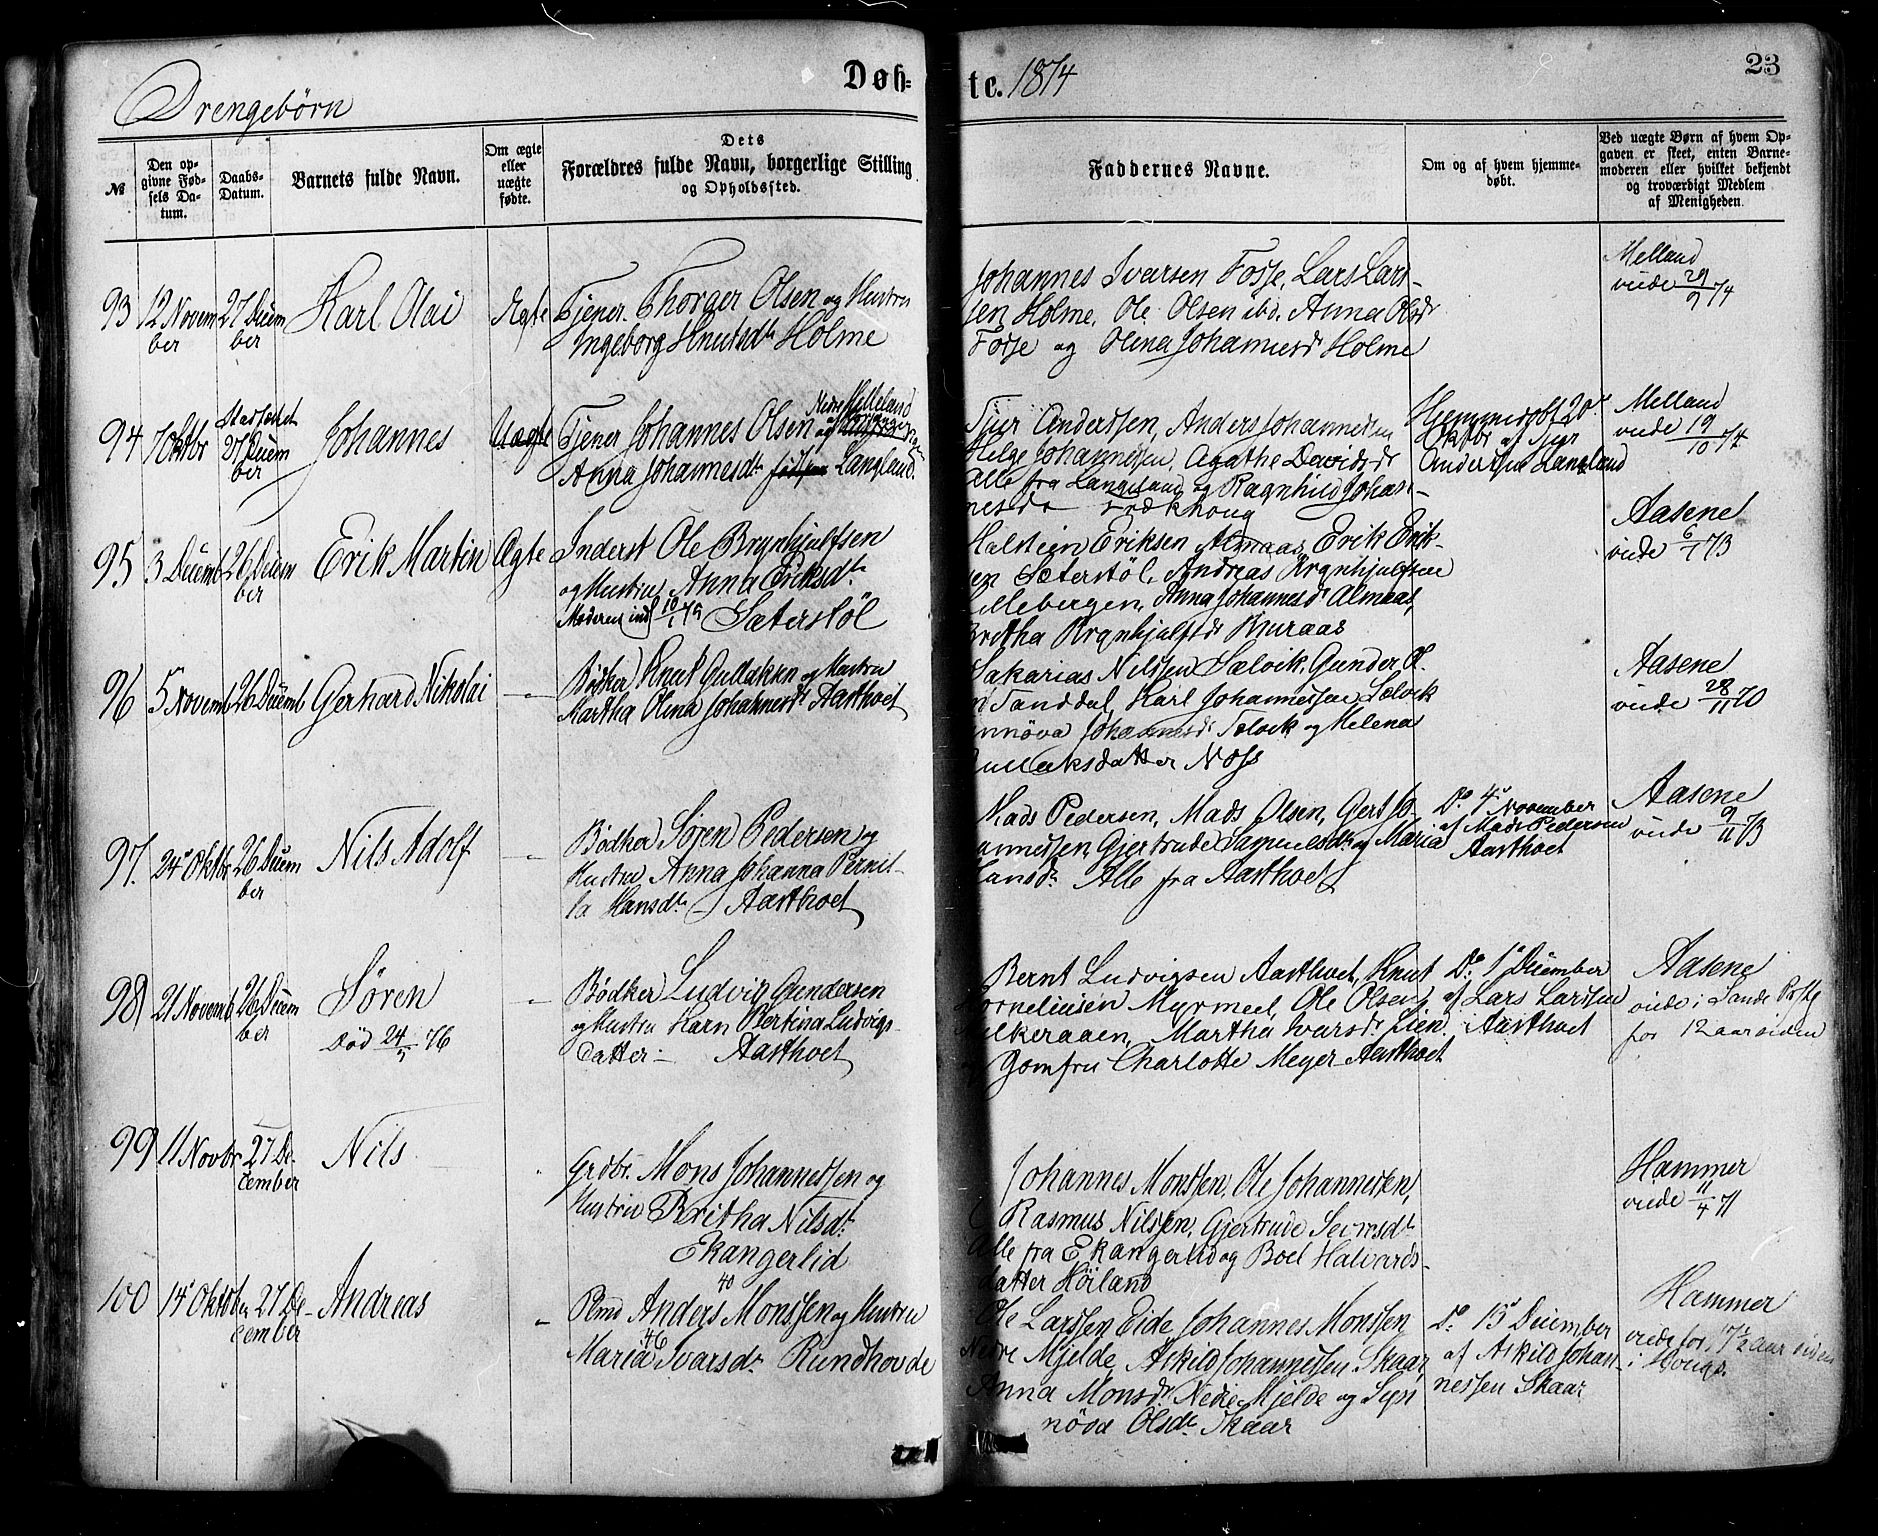 Drengebørn
Døb-
te. 1874
23
№
Den op-
givne Fød-
sels Da-
tum.
Daabs-
Datum.
Barnets fulde Navn.
Om ægte
eller
uægte
fødte.
Dets
Forældres fulde Navn, borgerlige Stilling
og Opholdssted.
Faddernes Navne.
Om og af hvem hjemme-
døbt.
Ved uægte Børn af hvem Op-
gaven er skeet, enten Barne-
moderen eller hvilket bekjendt
og troværdigt Medlem
af Menigheden.
93
12 Novem
ber
27 Decem
ber
Karl Olai
Ægte
Tjener Thorger Olsen og Hustru
Ingeborg Knutsdr Holme
Johannes Ivarsen Fosse, Lars Lars-
sen Holme, Ole Olsen ibd. Anna Olsdr
Fosse og Olina Johannesdr Holme
Melland
viede 29/9 74
94
7 Oktbr
Stadfæstet
27 Decem
ber
Johannes
Uægte
Tjener Johannes Olsen Nedre Helleland
og
Anna Johannesdr Langeland
Sjur Andersen, Anders Johannessen
Helge Johannessen, Agathe Davidsdr
Alle fra Langeland og Ragnhild Johan-
nesdr
Hjemmedøbt 20de
Oktbr af Sjur
Andersen Langeland
Melland
viede 19/10 74
95
3 Decemb
26 Decem
ber
Erik Martin
Ægte
Inderst Ole Brynhjulfsen
og Hustru Anna Eriksdr
Moderen ind 10/1 75 Sæterstøl
Halstein Eriksen Almaas, Erik Erik-
sen Sæterstøl, Andreas Brynhjulfsen
Lillebergen, Anna Johannesdr Almaas,
Britha Brynhjulfsdr Bjuraas
Aasene
viede 6/7 73
96
5 Novemb
26 Decemb
Gerhard Nikolai
-"-
Bødker Knut Gullaksen og Hustru
Martha Olina Johannesdr Aastvedt
Sakarias Nilssen Sælvik, Gunder O.
n Tanddal, Karl Johannessen Sælvik
Synnøva Johannesdr Sælvik og Helena
Gullaksdatter Noss
Aasene
viede 28/11 70
97.
24de Oktbr
26 Decem
ber
Nils Adolf
-"-
Bødker Søren Pedersen og
Hustru Anna Johanna Pernil-
la Hansdr Aastvedt
Mads Pedersen, Mads Olsen, Gert Jo-
hannessen, Gjertrude Samuelsdr og Maria
Hansdr Alle fra Aastvedt
Do 4de November
af Mads Pedersen
Aastvedt
Aasene
viede 9/11 73
98
21 Novemb
26 Decem
ber
Søren
Død 24/2 76
-"-
Bødker Ludvig Gundersen
og Hustru Karn Bertina Ludvigs-
datter - Aastvedt
Bernt Ludvigsen Aastvedt, Knut
Corneliusen Myrmeel, Ole Olsen
Fulkeraaen, Martha Ivarsdr Lien
og Jomfru Charlotte Meyer Aastvedt
Do 1ste December
af Lars Larssen
Aastvedt
Aasene
viede i Sande Præstg
for 12 aar siden
99
11 Novbr
27 De-
cember
Nils
Grdbr. Mons Johannessen og
Hustru Britha Nilsdr
Ekangerlid
Johannes Monssen, Ole Johannessen,
Rasmus Nilssen, Gjertrude Seimsdr
Alle fra Ekangerlid og Boel Halvards-
datter Høiland
Hammer
viede 11/4 71
100
14de Oktober
27 De-
cember
Andreas
-"-
Plmd Anders 40 Monssen og Hustru
Maria 46 Ivarsdr Rundhovde
Ole Larssen Eide, Johannes Monssen
Nedre Mjelde, Askild Johannessen Skaar,
Anna Monsdr Nedre Mjelde og Syn
nøva Olsdr Skaar
Do 13de December
af Askild Johan-
nessen Skaar
Hammer
viede for 17½ aar siden
i Hougs.